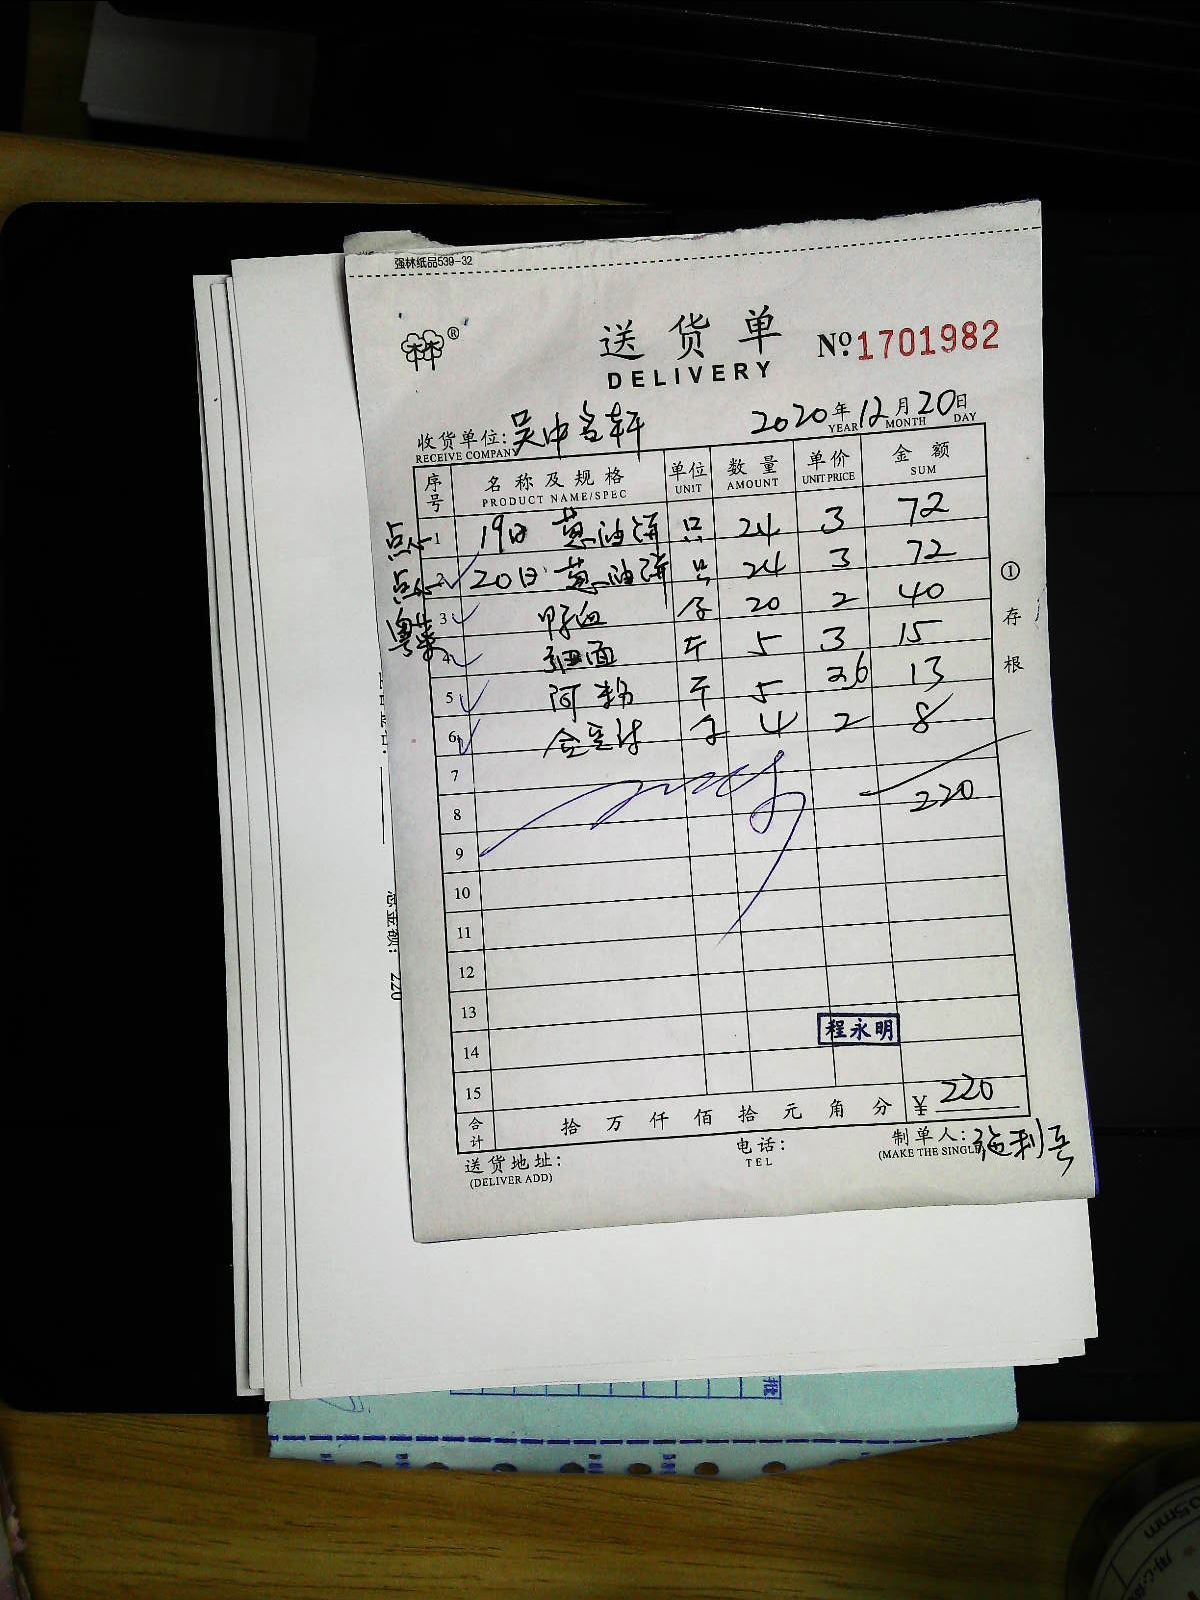 强林纸品539-32
林林®
送货单 Nº 1701982
DELIVERY
收货单位: 吴中名轩 2020年12月20日
RECEIVE COMPANY YEAR MONTH DAY
序号 名称及规格 单位 数量 单价 金额
PRODUCT NAME/SPEC UNIT AMOUNT UNIT PRICE SUM
点心 1 19日 葱油饼 只 24 3 72
点心 2 20日 葱油饼 只 24 3 72
粤菜 3 鸭血 20 2 40
4 细面 斤 5 3 15
5 阿粉 斤 5 2.6 13
6 4 2 8
7
8 220
9
10
11
12
13
程永明
14
15
合计 拾 万 仟 佰 拾 元 角 分 ¥ 220
送货地址: 电话: 制单人: 施利
(DELIVER ADD) TEL (MAKE THE SINGLE
① 存根
总金额: 220
0.5mm